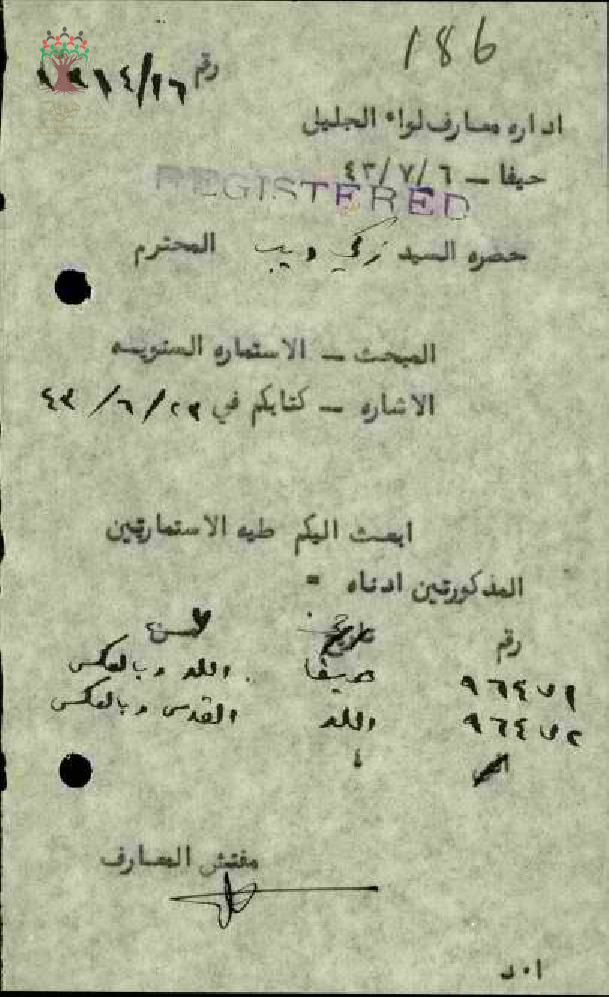 186
رقم
اداره معارف لواء الجليل
حيفا - ٤٣/٧/٦
REGISTERED
حضره السيد زكي ديب المحترم
المبحث - الاستماره السنويه
الاشاره - كتابكم في ٤٣/٦/٢٣
ابعث اليكم طيه الاستمارتين
المذكورتين ادناه =
رقم
٩٦٤٧١ حيفا اللد وبالعكس
٩٦٤٧٢ اللد القدس وبالعكس
مفتش المعارف